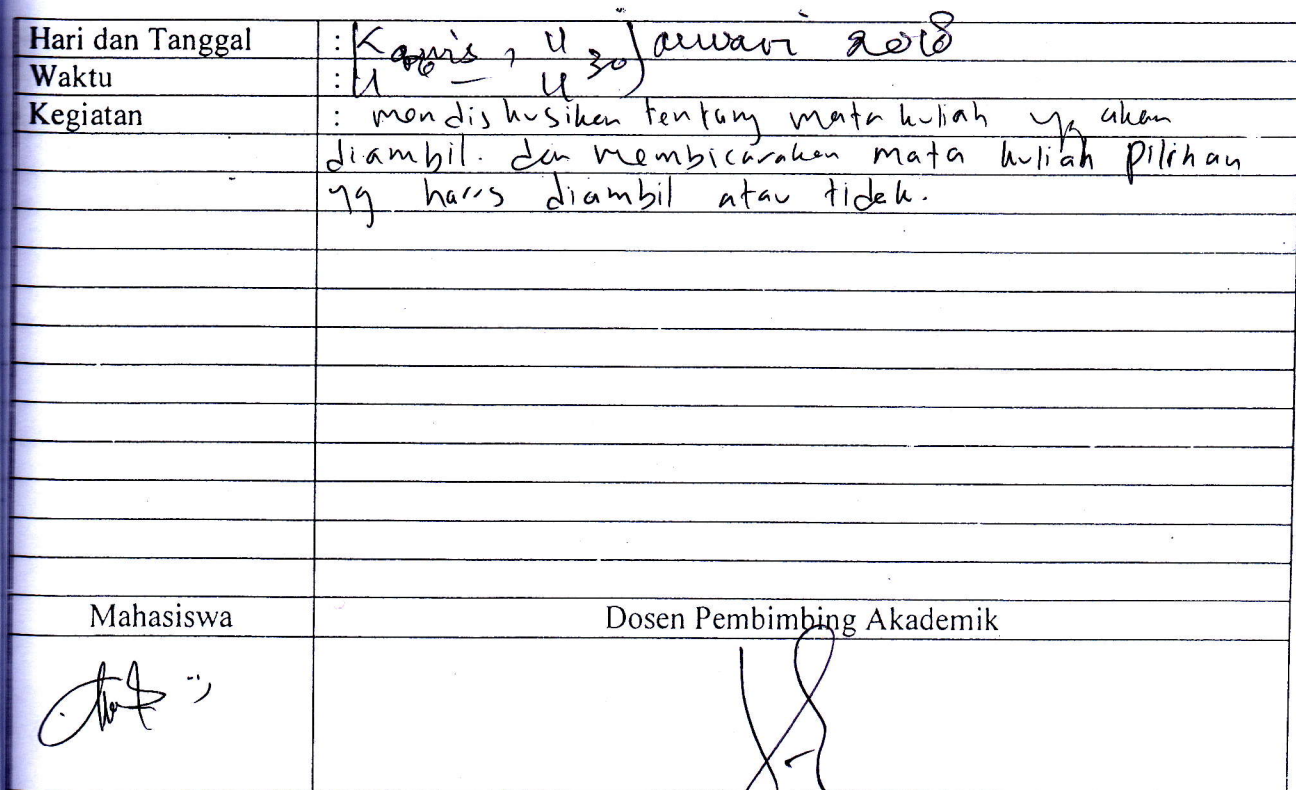 Hari dan Tanggal : Kamis, 11 Januari 2018
Waktu : 11 00 – 11 30
Kegiatan : mendiskusikan tentang mata kuliah yg akan
diambil. dan membicarakan mata kuliah pilihan
yg harus diambil atau tidak.
Mahasiswa Dosen Pembimbing Akademik